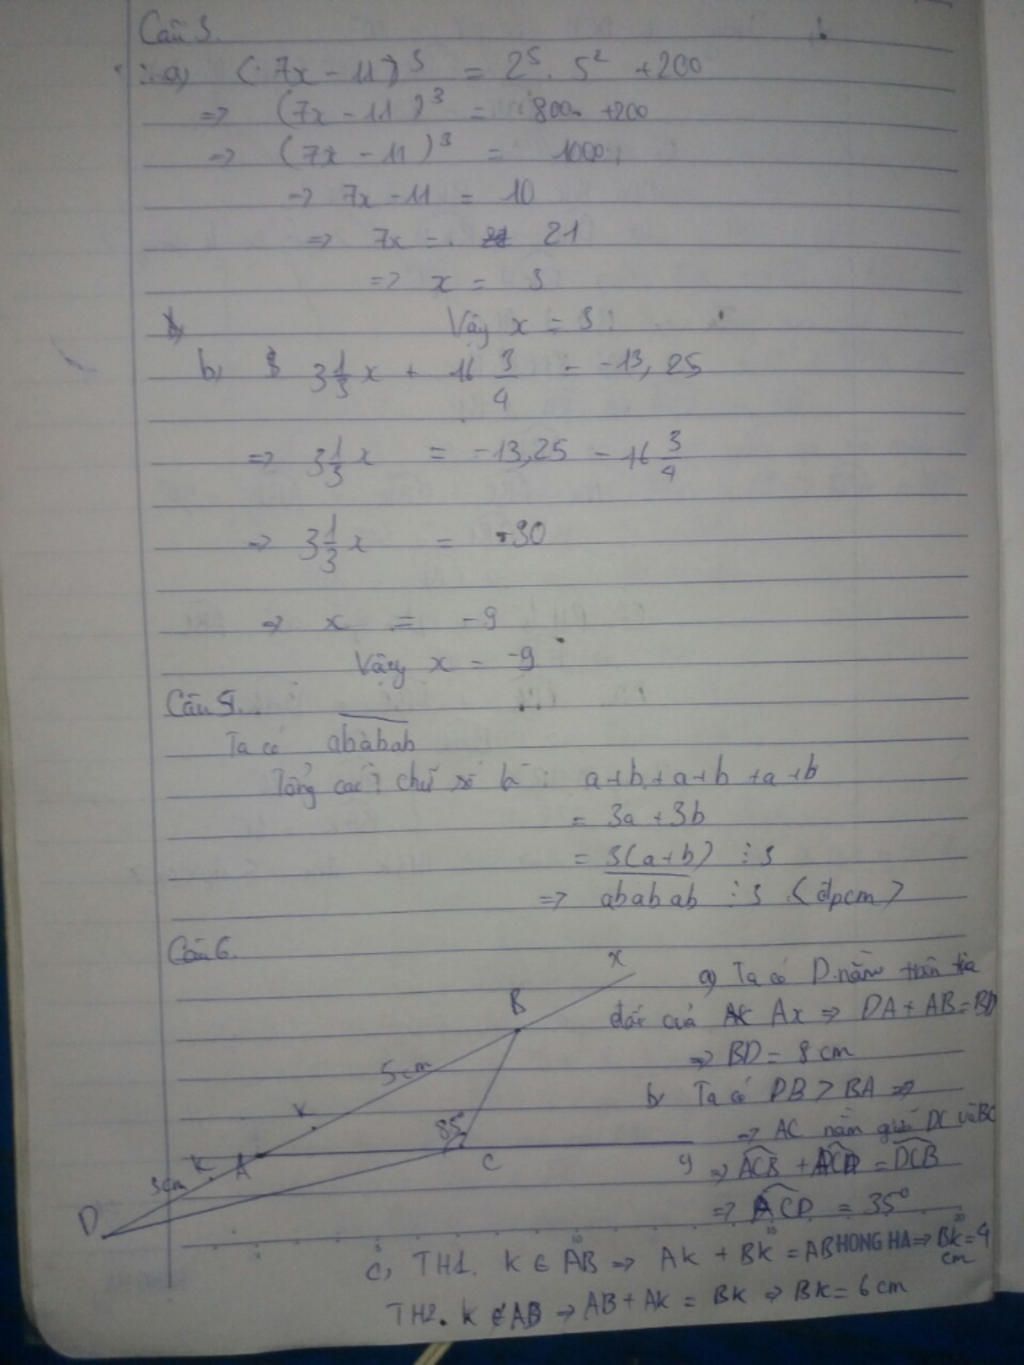 Câu 3.
a) (7x - 11)³ = 2⁵. 5² + 200
=> (7x - 11)³ = 800 + 200
=> (7x - 11)³ = 1000
=> 7x - 11 = 10
=> 7x = 21
=> x = 3
Vậy x = 3
b, 3 1/3 x + 16 3/4 = -13,25
=> 3 1/3 x = -13,25 - 16 3/4
=> 3 1/3 x = -30
=> x = -9
Vậy x = -9
Câu 5.
Ta có ababab
Tổng các chữ số là : a+b+a+b+a+b
= 3a + 3b
= 3(a+b) ⋮ 3
=> ababab ⋮ 3 (đpcm)
Câu 6.
x
B
5cm
K
85°
C
y
A
K
3cm
D
a) Ta có D nằm trên tia
đối của Ax => DA + AB = BD
=> BD = 8 cm
b, Ta có DB > BA =>
=> AC nằm giữa DC và BC
=> ACB + ACD = DCB
=> ACD = 35°
c, TH1. K ∈ AB => AK + BK = AB => BK = 4
cm
HONG HA
TH2. K ∉ AB => AB + AK = BK => BK = 6 cm